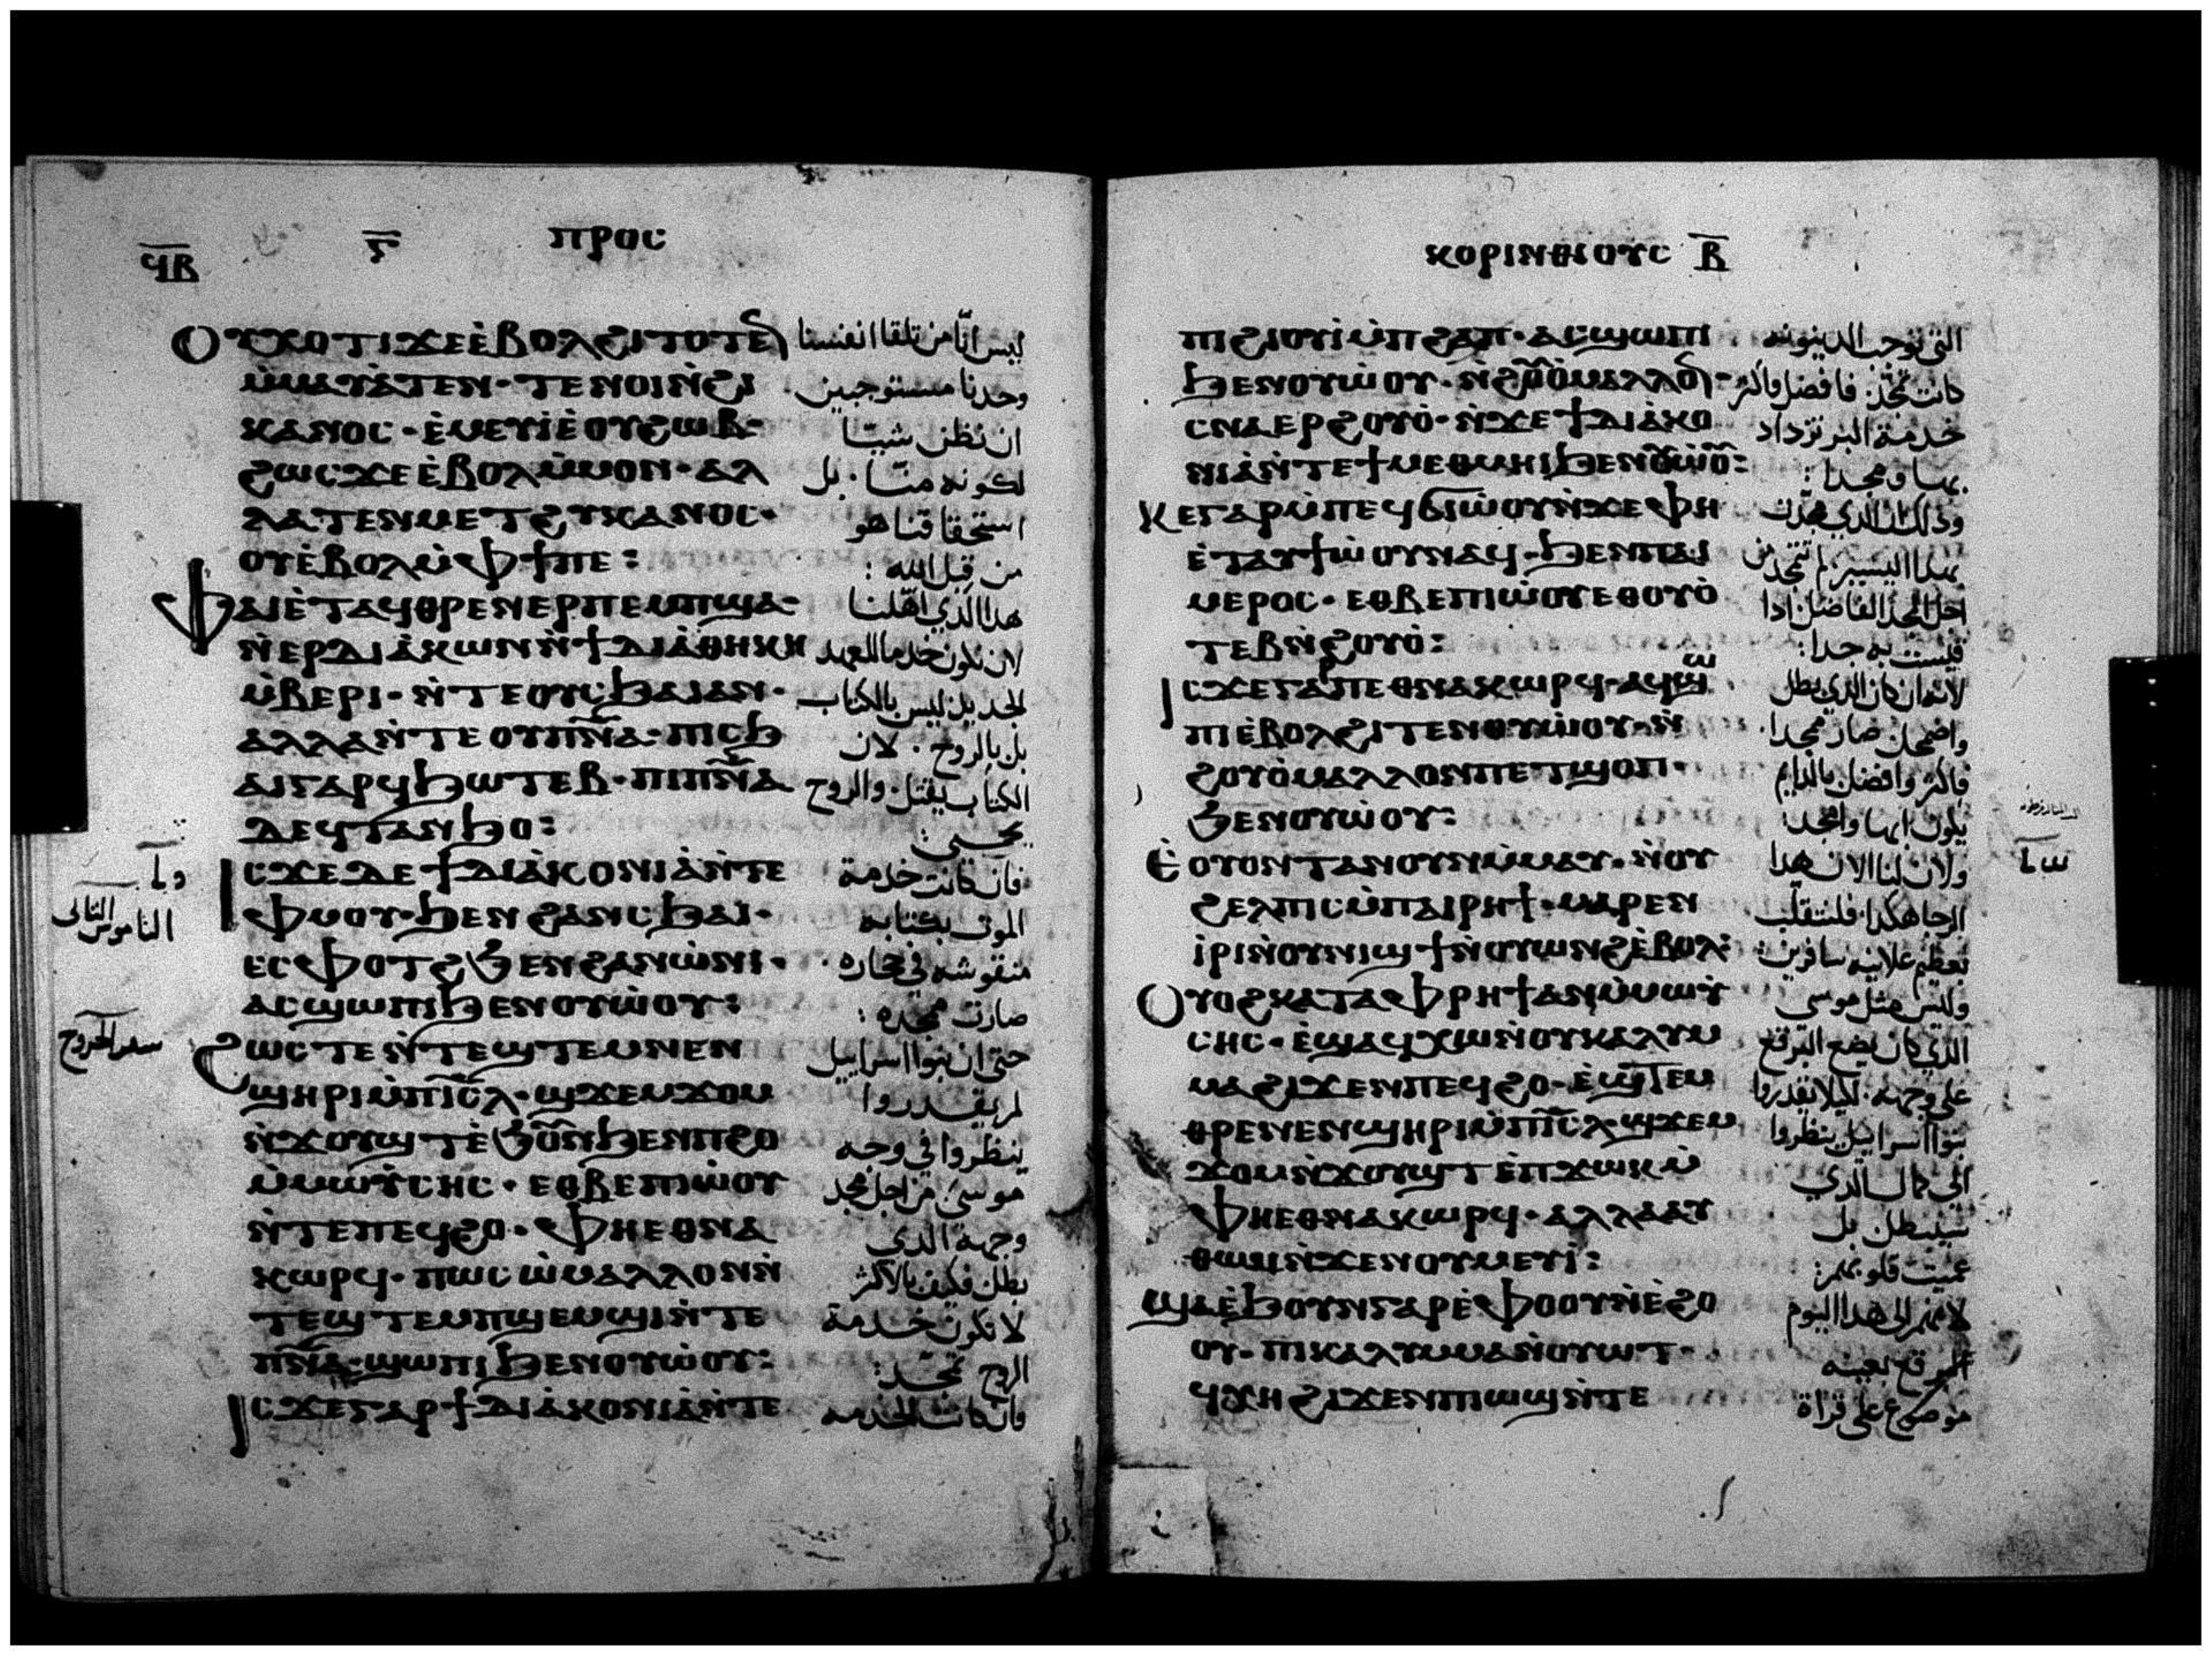 ϥⲃ ⲋ ⲡⲣⲟⲥ
ⲟⲩⲭⲟⲧⲓϫⲉⲉ̀ⲃⲟⲗϩⲓⲧⲟⲧⲉⲛ ليس انّا من تلقا انفسنا
ⲙ̀ⲙⲁⲩⲁ̀ⲧⲉⲛ· ⲧⲉⲛⲟⲓⲛ̀ϩⲓ وحدنا مستوجبين
ⲕⲁⲛⲟⲥ· ⲉ̀ⲙⲉⲩⲓ̀ⲉ̀ⲟⲩϩⲱⲃ· ان نظن شيًا
ϩⲱⲥϫⲉⲉ̀ⲃⲟⲗⲙ̀ⲙⲟⲛ· ⲁⲗ لكونه منّا· بل
ⲗⲁⲧⲉⲛⲙⲉⲧϩⲩⲕⲁⲛⲟⲥ· استحقاقنا هو
ⲟⲩⲉ̀ⲃⲟⲗⲙ̀ⲫϯⲡⲉ: من قبل الله :
ⲫⲁⲓⲉ̀ⲧⲁϥⲑⲣⲉⲛⲉⲣⲡⲉⲙⲡϣⲁ· هدا الدي اهّلنا
ⲛ̀ⲉⲣⲇⲓⲁ̀ⲕⲱⲛⲛ̀ϯⲇⲓⲁ̀ⲑⲏⲕⲏ لان نكون خدما للعهد
ⲙ̀ⲃⲉⲣⲓ· ⲛ̀ⲧⲉⲟⲩⲥϧⲁⲓⲁⲛ· الجديد ليس بالكتاب
ⲁⲗⲗⲁⲛ̀ⲧⲉⲟⲩⲡⲛ̅ⲁ̅· ⲡⲓⲥϧ بل بالروح· لان
ⲁⲓⲅⲁⲣϥϧⲱⲧⲉⲃ· ⲡⲓⲡⲛ̅ⲁ̅ الكتاب يقتل· والروح
ⲇⲉϥⲧⲁⲛϧⲟ: يحيي:
ⲓⲥϫⲉⲇⲉϯⲇⲓⲁ̀ⲕⲟⲛⲓⲁ̀ⲛ̀ⲧⲉ فان كانت خدمة
ⲫⲙⲟⲩ· ϧⲉⲛϩⲁⲛⲥϧⲁⲓ· الموت بكتابه
الناموس التانى
ⲉⲥⲫⲟⲧϩϧⲉⲛϩⲁⲛⲱ̀ⲛⲓ· منقوشه في حجاره
ⲁⲥϣⲱⲡⲓϧⲉⲛⲟⲩⲱ̀ⲟⲩ: صارت بمجده :
سفر الخروج
ϩⲱⲥⲧⲉⲛ̀ⲧⲉϣⲧⲉⲙⲛⲉⲛ حتى ان بنوا اسراييل
ϣⲏⲣⲓⲙ̀ⲡⲓⲥ̅ⲗ̅· ϣϫⲉⲙϫⲟⲙ لم يقدروا
ⲛ̀ϫⲟⲩϣⲧⲉ̀ϧⲟⲩⲛϧⲉⲛⲡϩⲟ ينظروا في وجه
ⲙ̀ⲙⲱⲩ̀ⲥⲏⲥ· ⲉⲑⲃⲉⲡⲓⲱ̀ⲟⲩ موسى من اجل مجد
ⲛ̀ⲧⲉⲡⲉϥϩⲟ· ⲫⲏⲉⲑⲛⲁ وجهه الدي
ⲕⲱⲣϥ· ⲡⲱⲥⲱ̀ⲙⲁⲗⲗⲟⲛⲛ̀ بطل فكيف بالاكثر
ⲧⲉϣⲧⲉⲙⲡϣⲉⲙϣⲓⲛ̀ⲧⲉ لا تكون خدمة
ⲡⲛ̅ⲁ̅· ϣⲱⲡⲓϧⲉⲛⲟⲩⲱ̀ⲟⲩ: الروح بمجد:
ⲓⲥϫⲉⲅⲁⲣϯⲇⲓⲁ̀ⲕⲟⲛⲓⲁ̀ⲛ̀ⲧⲉ فان كانت الخدمه
ⲕⲟⲣⲓⲛⲑⲓⲟⲩⲥ ⲃ̅
ⲡⲓϩⲓⲟⲩⲓ̀ⲙ̀ⲡϩⲁⲡ· ⲁⲥϣⲱⲡⲓ التي توجب الدينونه
ϧⲉⲛⲟⲩⲱ̀ⲟⲩ· ⲛ̀ϩⲟⲩⲟ̀ⲙⲁⲗⲗⲟⲛ كانت بمجد· فافضل واكثر
ⲥⲛⲁⲉⲣϩⲟⲩⲟ̀· ⲛ̀ϫⲉϯⲇⲓⲁ̀ⲕⲟ خدمة البر تزداد
ⲛⲓⲁ̀ⲛ̀ⲧⲉϯⲙⲉⲑⲙⲏⲓϧⲉⲛⲟⲩⲱ̀ⲟⲩ: بها ومجدا:
ⲕⲉⲅⲁⲣⲙ̀ⲡⲉϥϭⲓⲱ̀ⲟⲩⲛ̀ϫⲉⲫⲏ
ⲉ̀ⲧⲁⲩϯⲱ̀ⲟⲩⲛⲁϥ· ϧⲉⲛⲡⲁⲓ بهدا اليسير لم يتمجد من
ⲙⲉⲣⲟⲥ· ⲉⲑⲃⲉⲡⲓⲱ̀ⲟⲩⲉⲑⲟⲩⲟ̀ اجل المجد الفاضل ادا
ⲧⲉⲃⲛ̀ϩⲟⲩⲟ̀: قيست به جدا:
ⲓⲥϫⲉⲅⲁⲣⲡⲉⲑⲛⲁⲕⲱⲣϥ· ⲁϥϣⲱ لانه ان كان الدي بطل
ⲡⲓⲉ̀ⲃⲟⲗϩⲓⲧⲉⲛⲟⲩⲱ̀ⲟⲩ· ⲛ̀ واضمحل صار بمجدا·
ϩⲟⲩⲟ̀ⲙⲁⲗⲗⲟⲛⲡⲉⲧϣⲟⲡ· فاكثر وافضل بالدايم
ϧⲉⲛⲟⲩⲱ̀ⲟⲩ: يكون ابها وامجد:
ⲉ̀ⲟⲩⲟⲛⲧⲁⲛⲟⲩⲛⲙ̀ⲙⲁⲩ· ⲛ̀ⲟⲩ ولان لنا الان هدا
ϩⲉⲗⲡⲓⲥⲙ̀ⲡⲁⲓⲣⲏϯ· ⲙⲁⲣⲉⲛ الرجا هكدا· فلنتقلب
ⲓ̀ⲣⲓⲛ̀ⲟⲩⲛⲓϣϯⲛ̀ⲟⲩⲱⲛϩⲉ̀ⲃⲟⲗ:
ⲟⲩⲟϩⲕⲁⲧⲁⲫⲣⲏϯⲁⲛⲙ̀ⲙⲱⲩ̀ وليس مثل موسى
ⲥⲏⲥ· ⲉ̀ϣⲁϥⲭⲱⲛ̀ⲟⲩⲕⲁⲗⲩⲙ الدي كان يضع البرقع
ⲙⲁϩⲓϫⲉⲛⲡⲉϥϩⲟ· ⲉ̀ϣⲧⲉⲙ على وجهه· لكيلا يقدروا
ⲑⲣⲉⲛⲉⲛϣⲏⲣⲓⲙ̀ⲡⲓⲥ̅ⲗ̅· ϣϫⲉⲙ بنوا اسراييل ينظروا
ϫⲟⲙⲛ̀ϫⲟⲩϣⲧⲉ̀ⲡϫⲱⲕⲙ̀ الى كمال الدي
ⲫⲏⲉⲑⲛⲁⲕⲱⲣϥ· ⲁⲗⲗⲁⲁⲩ سيبطل بل
ⲑⲱⲙⲛ̀ϫⲉⲛⲟⲩⲙⲉⲩⲓ̀: عميت قلوبهم:
ϣⲁⲉ̀ϧⲟⲩⲛⲅⲁⲣⲉ̀ⲫⲟⲟⲩⲛ̀ⲉ̀ϩⲟ لانهم الى هدا اليوم
ⲟⲩ· ⲡⲓⲕⲁⲗⲩⲙⲙⲁⲛ̀ⲟⲩⲱⲧ· البرقع بعينه
ϥⲭⲏϩⲓϫⲉⲛⲡⲓⲱϣⲛ̀ⲧⲉ موضوع على قراة